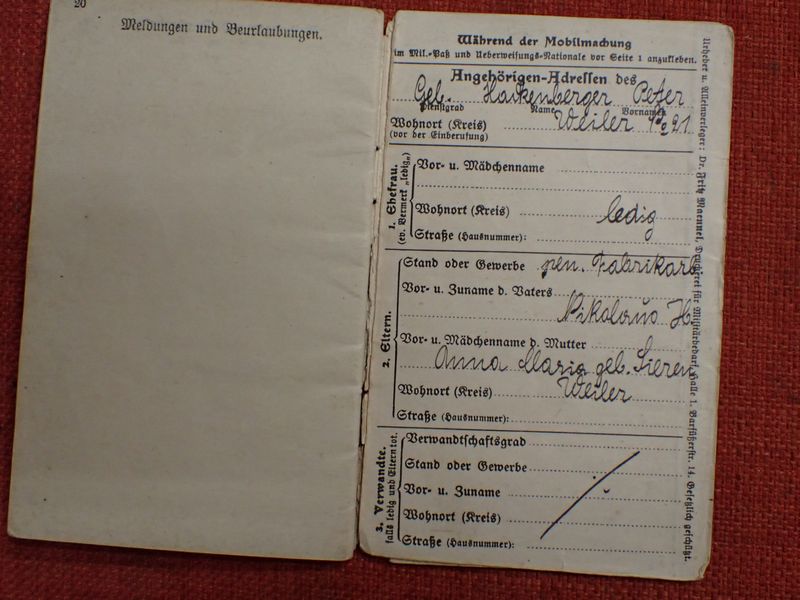 20
Meldungen und Beurlaubungen.
Während der Mobilmachung
im Mil.-Paß und Ueberweisungs-Nationale vor Seite 1 anzukleben.
Angehörigen-Adressen des
Gef. Hackenberger Peter
Dienstgrad Name Vornamen
Wohnort (Kreis) Weiler
(vor der Einberufung)
1. Ehefrau.
(ev. Vermerk „ledig")
Vor- u. Mädchenname
Wohnort (Kreis) ledig
Straße (Hausnummer):
2. Eltern.
Stand oder Gewerbe pen. Fabrikarb
Vor- u. Zuname d. Vaters
Nikolaus H
Vor- u. Mädchenname d. Mutter
Anna Maria geb. Sieren
Wohnort (Kreis) Weiler
Straße (Hausnummer):
3. Verwandte.
falls ledig und Eltern tot.
Verwandtschaftsgrad
Stand oder Gewerbe
Vor- u. Zuname
Wohnort (Kreis)
Straße (Hausnummer):
Urheber u. Alleinverleger: Dr. Fritz Maennel, Druckerei für Militärbedarf, Halle 1. Barfüßerstr. 14. Gesetzlich geschützt.